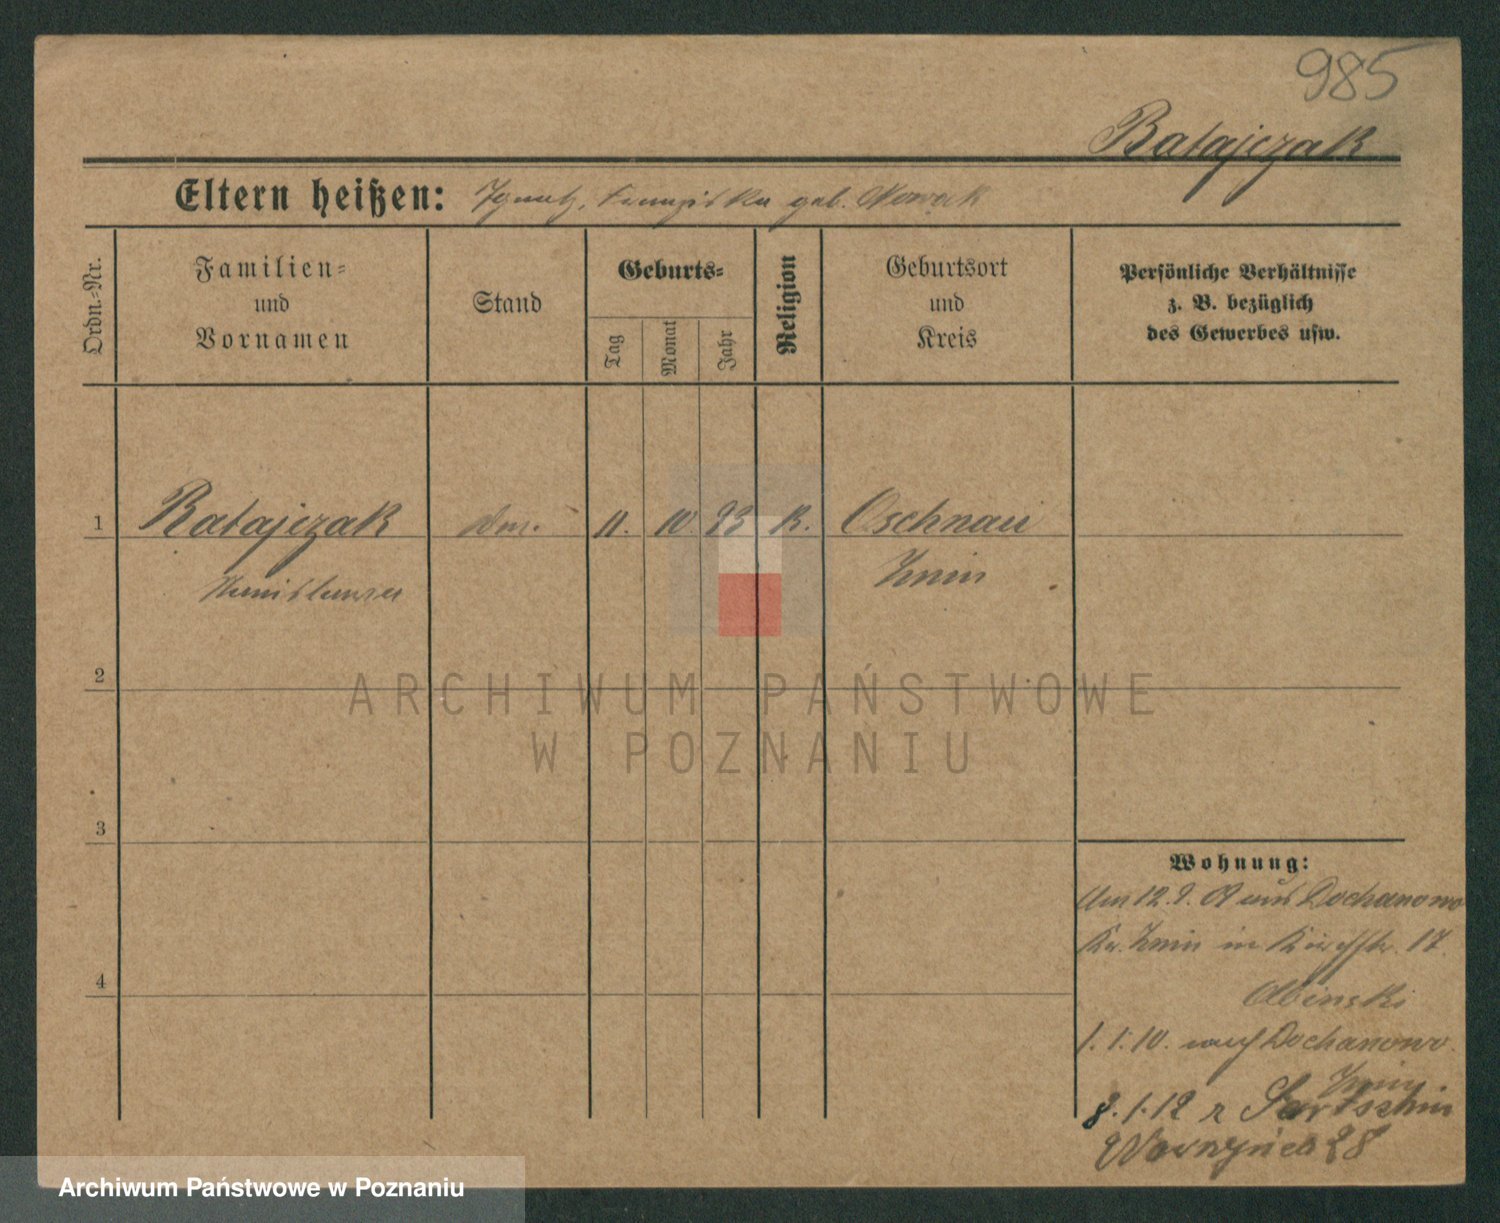 985
Ratajczak
Eltern heißen: Ignatz, Franziska geb. Nowak
Ordn.-Nr.
Familien-
und
Vornamen
Stand
Geburts-
Tag
Monat
Jahr
Religion
Geburtsort
und
Kreis
Persönliche Verhältnisse
z. B. bezüglich
des Gewerbes usw.
1 Ratajczak 11. 10. 93 K. Oschnau
Stanislawa Znin
2
ARCHIWUM PAŃSTWOWE
W POZNANIU
3
Wohnung:
Am 12.9.09 aus Dochanowo
Kr. Znin in Kirchstr. 17.
Olbinski
1.1.10. nach Dochanowo
Znin
4
8.1.12
28
Archiwum Państwowe w Poznaniu